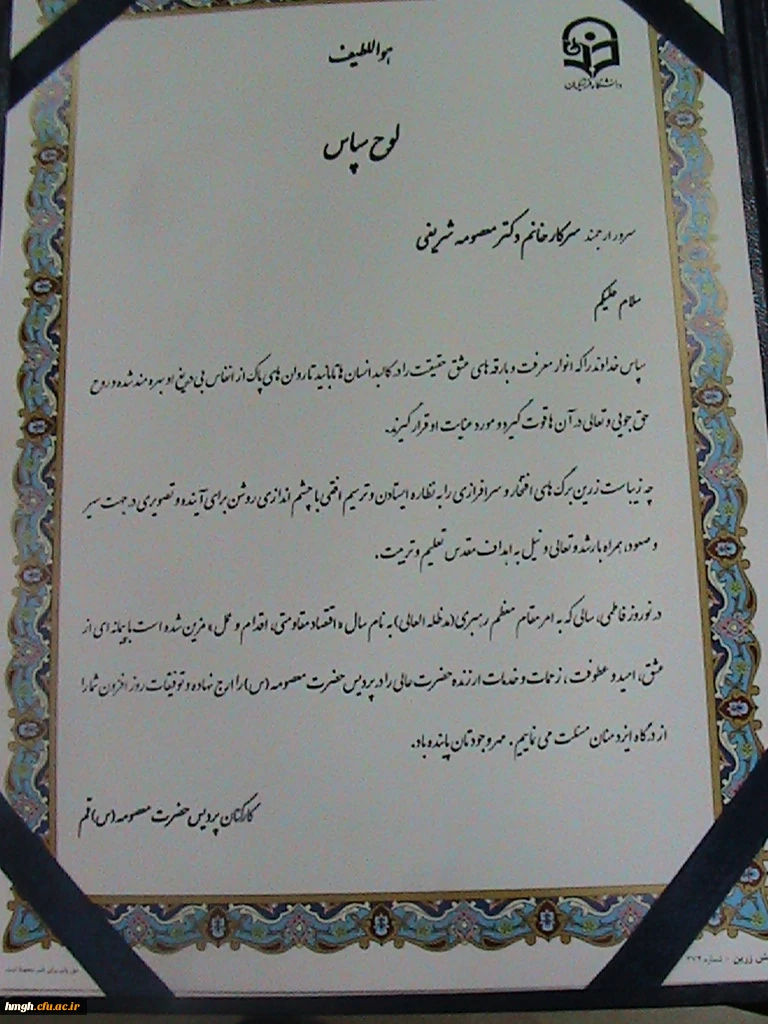 هو اللطیف
دانشگاه فرهنگیان
لوح سپاس
سرور ارجمند سرکار خانم دکتر معصومه شریفی
سلام علیکم
سپاس خداوند را که انوار معرفت و بارقه های عشق حقیقت را در کالبد انسان ها تابانید تا روان های پاک از انفاس بی دریغ او بهره مند شده و روح
حق جویی و تعالی در آن ها قوت گیرد و مورد عنایت او قرار گیرند.
چه زیباست زرین برگ های افتخار و سرافرازی را به نظاره ایستادن و ترسیم افقی با چشم اندازی روشن برای آینده و تصویری در جهت سیر
و صعود، همراه با رشد و تعالی و نیل به اهداف مقدس تعلیم و تربیت.
در نوروز فاطمی، سالی که به امر مقام معظم رهبری(مدظله العالی) به نام سال «اقتصاد مقاومتی، اقدام و عمل» مزین شده است با پیمانه ای از
عشق، امید و عطوفت، زحمات و خدمات ارزنده حضرت عالی را در پردیس حضرت معصومه (س) را ارج نهاده و توفیقات روز افزون شما را
از درگاه ایزد منان مسئلت می نماییم. مهر وجودتان پاینده باد.
کارکنان پردیس حضرت معصومه (س) قم
ش زرین - شماره ۲۷۲
hmgh.cfu.ac.ir